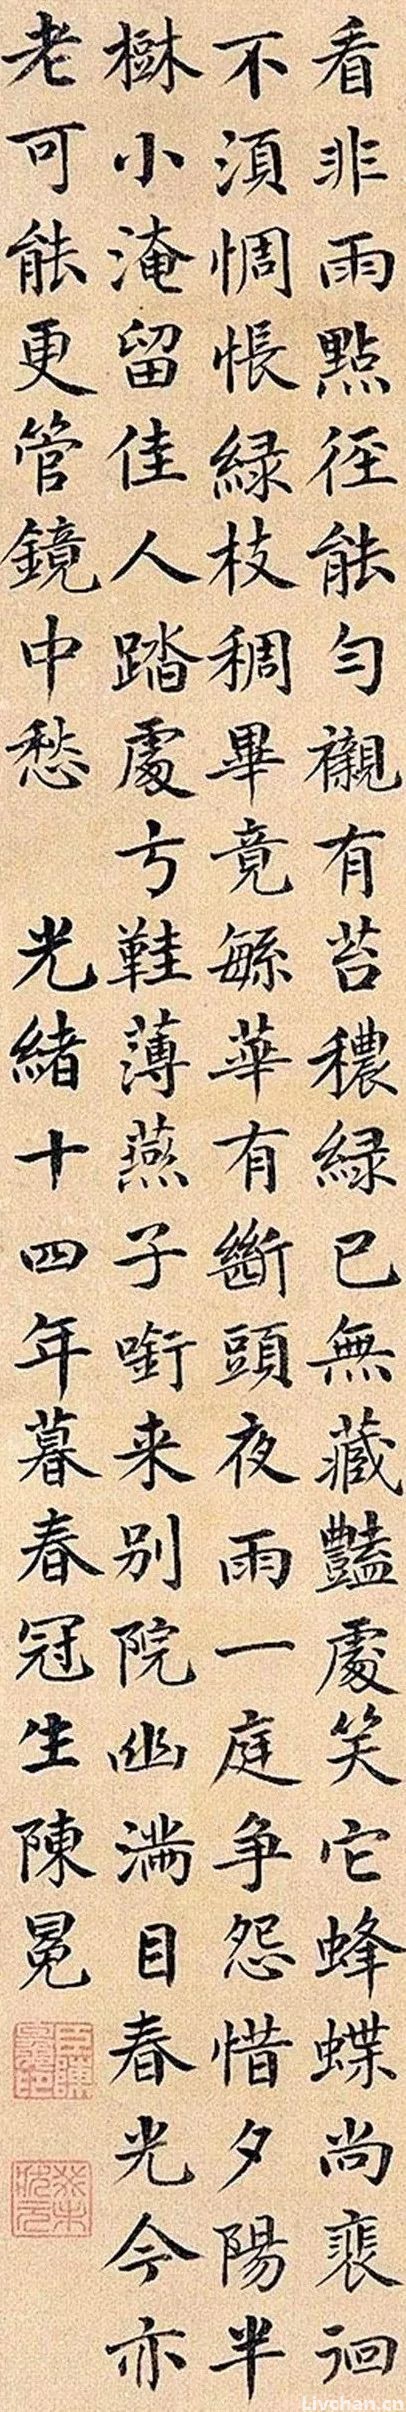 看非雨點徑能勻襯有苔穠綠已無藏豔處笑它蜂蝶尚裴徊
不須惆悵綠枝稠畢竟緐華有斷頭夜雨一庭爭怨惜夕陽半
樹小淹留佳人踏處弓鞋薄燕子銜来别院幽滿目春光今亦
老可能更管鏡中愁 光緒十四年暮春冠生陳冕
Livchan.cn